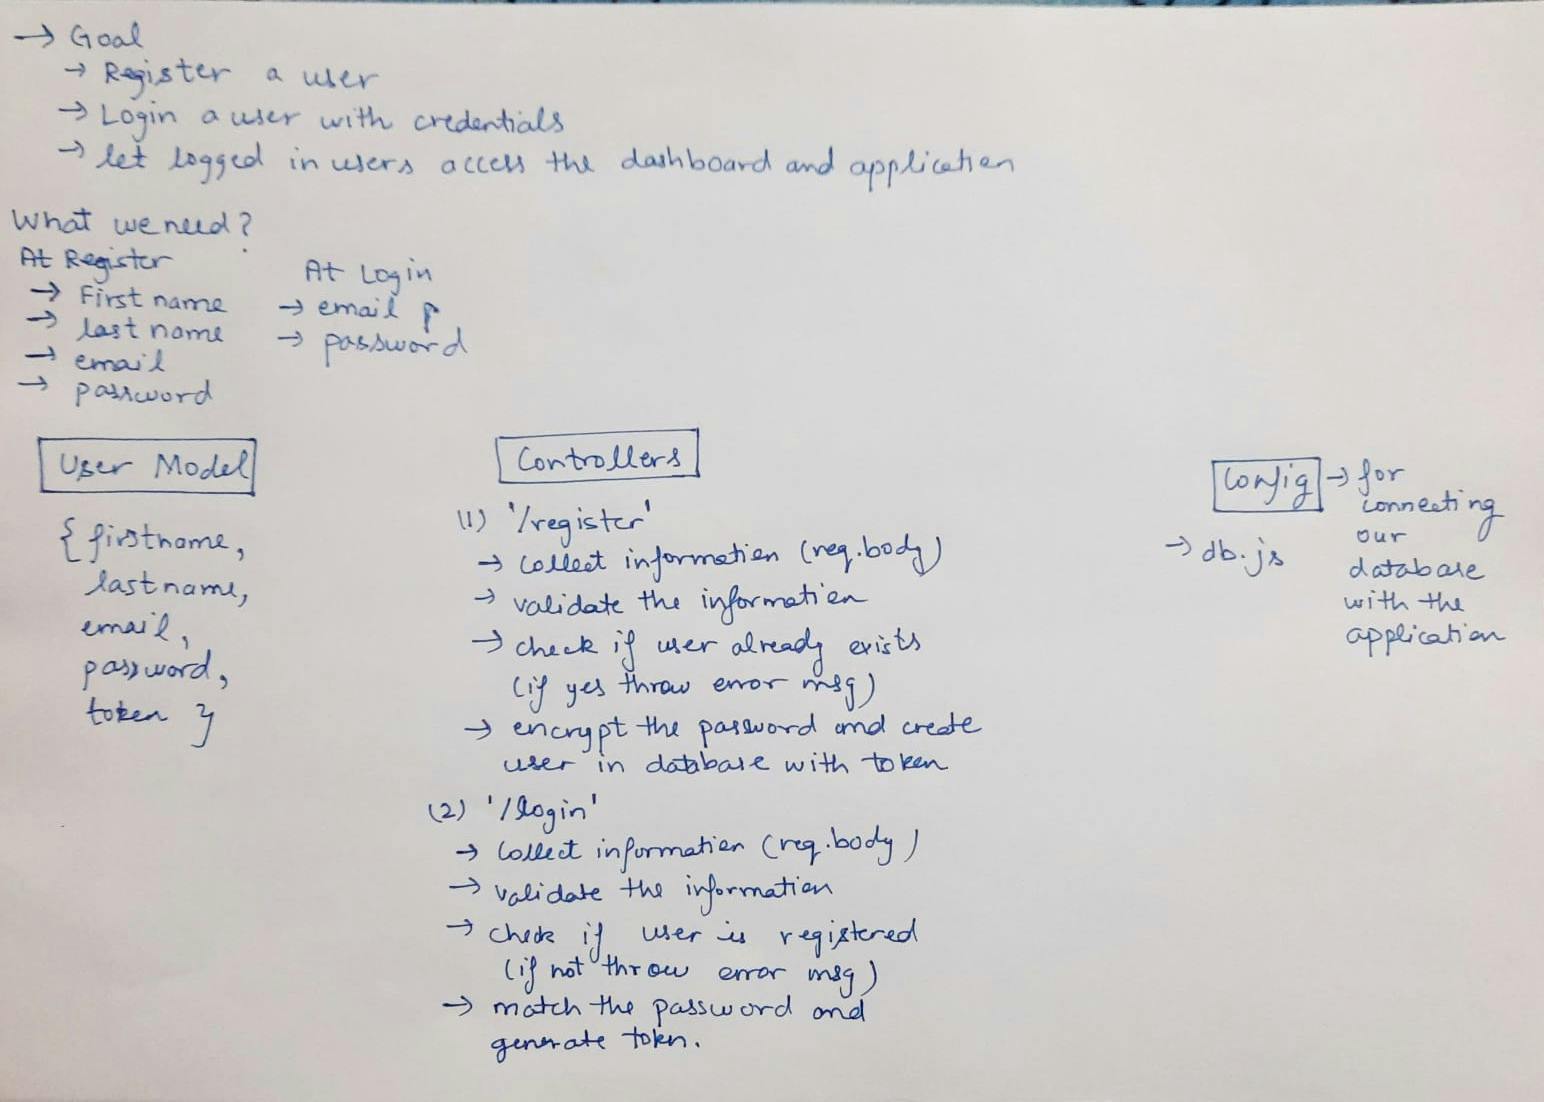 → Goal
→ Register a user
→ Login a user with credentials
→ let logged in users access the dashboard and application
What we need?
At Register
→ First name
→ last name
→ email
→ password
At Login
→ email p
→ password
User Model
{ firstname,
lastname,
email,
password,
token }
Controllers
(1) '/register'
→ collect information (req.body)
→ validate the information
→ check if user already exists
(if yes throw error msg)
→ encrypt the password and create
user in database with token
(2) '/login'
→ collect information (req.body)
→ validate the information
→ check if user is registered
(if not throw error msg)
→ match the password and
generate token.
Config → for
connecting
our
database
with the
application
→ db.js